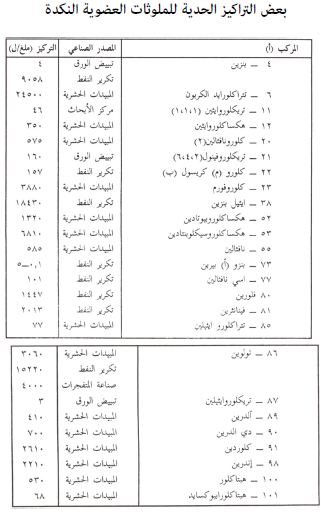 بعض التراكيز الحدية للملوثات العضوية النكدة
المركب (أ) المصدر الصناعي التركيز (ملغ/ل)
٤ – بنزين تبييض الورق ٤
تكرير النفط ٩٠٥٨
٦ – تتراكلورايد الكربون المبيدات الحشرية ٢٤٥٠٠
١١ – تريكلوروايثين (١،١،١) مركز الأبحاث ٤٦
١٢ – هكساكلوروايثين المبيدات الحشرية ٣٥٠
٢٠ – كلورونافثالين(٢) المبيدات الحشرية ٥٧٥
٢١ – تريكلوروفينول(٦،٤،٢) تبييض الورق ١٦٠
٢٢ – كلورو (م) كريسول (ب) تكرير النفط ١٥٧
٢٣ – كلوروفورم المبيدات الحشرية ٣٨٨٠
٣٨ – ايثيل بنزين تكرير النفط ١٨٤٣٠
٥٢ – هكساكلوروبيوتادين المبيدات الحشرية ١٣٢٠
٥٣ – هكساكلوروسيكلوبنتادين المبيدات الحشرية ٦٨١٠
٥٥ – نافثالين المبيدات الحشرية ٥٨٥
٧٣ – بنزو (أ) بيرين تكرير النفط ٠،١–٥
٧٧ – اسي نافثالين تكرير النفط ١٠١
٨٠ – فلورين تكرير النفط ١٤٤٧
٨١ – فينانثرين تكرير النفط ٢٠١٣
٨٥ – تتراكلورو ايثيلين المبيدات الحشرية ٧٧
٨٦ – تولوين المبيدات الحشرية ٣٠٦٠
تكرير النفط ١٥٢٢٠
صناعة المتفجرات ٤٠٠٠
٨٧ – تريكلوروايثيلين تبييض الورق ٣
٨٩ – ألدرين المبيدات الحشرية ٤١٠
٩٠ – دي الدرين المبيدات الحشرية ٧٠٠
٩١ – كلوردين المبيدات الحشرية ٢٦١٠
٩٨ – إندرين المبيدات الحشرية ٢٢١٠
١٠٠ – هبتاكلور المبيدات الحشرية ٥٣٠
١٠١ – هبتاكلورايبوكسايد المبيدات الحشرية ٦٨